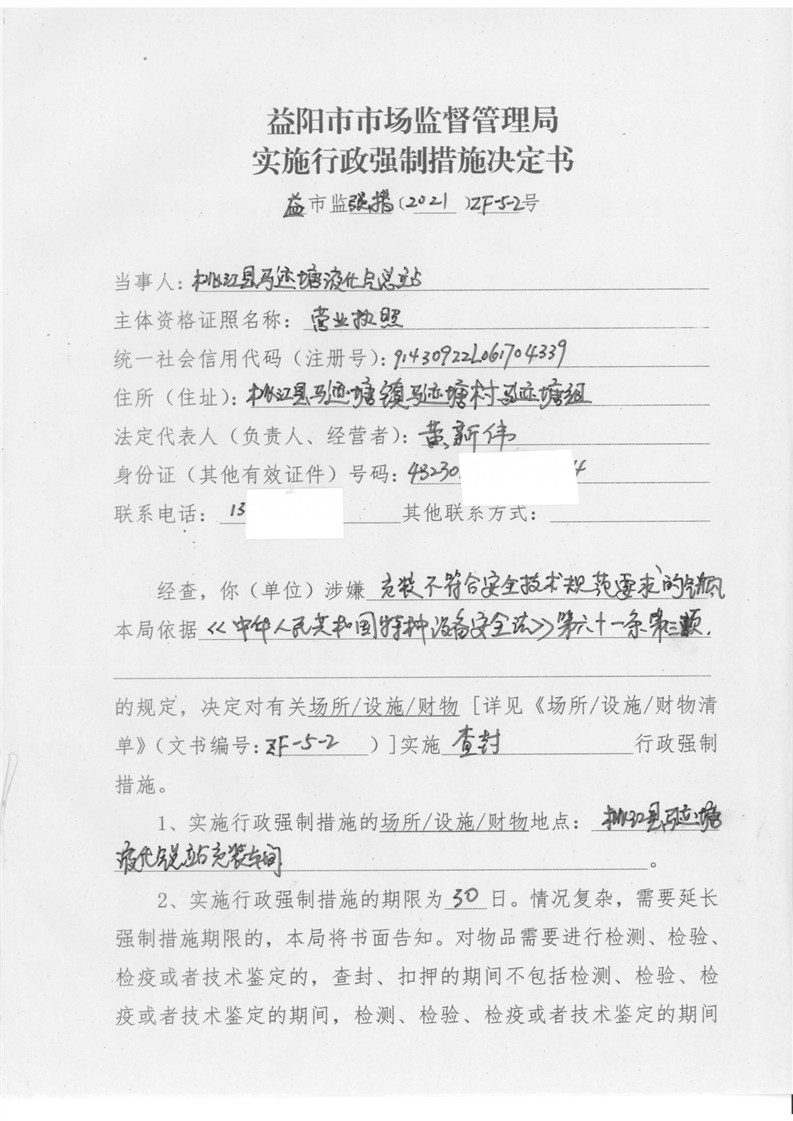 益阳市市场监督管理局
实施行政强制措施决定书
益市监强措(2021)ZF-5-2号
当事人:桃江县马迹塘液化气总站
主体资格证照名称:营业执照
统一社会信用代码(注册号):91430922L061704339
住所(住址):桃江县马迹塘镇马迹塘村马迹塘组
法定代表人(负责人、经营者):黄新伟
身份证(其他有效证件)号码:43230 4
联系电话:13 其他联系方式:
经查,你(单位)涉嫌充装不符合安全技术规范要求的气瓶
本局依据《中华人民共和国特种设备安全法》第六十一条第三款.
的规定,决定对有关场所/设施/财物[详见《场所/设施/财物清
单》(文书编号:ZF-5-2 )]实施查封 行政强制
措施。
1、实施行政强制措施的场所/设施/财物地点:桃江县马迹塘
液化气总站充装车间。
2、实施行政强制措施的期限为30日。情况复杂,需要延长
强制措施期限的,本局将书面告知。对物品需要进行检测、检验、
检疫或者技术鉴定的,查封、扣押的期间不包括检测、检验、检
疫或者技术鉴定的期间,检测、检验、检疫或者技术鉴定的期间